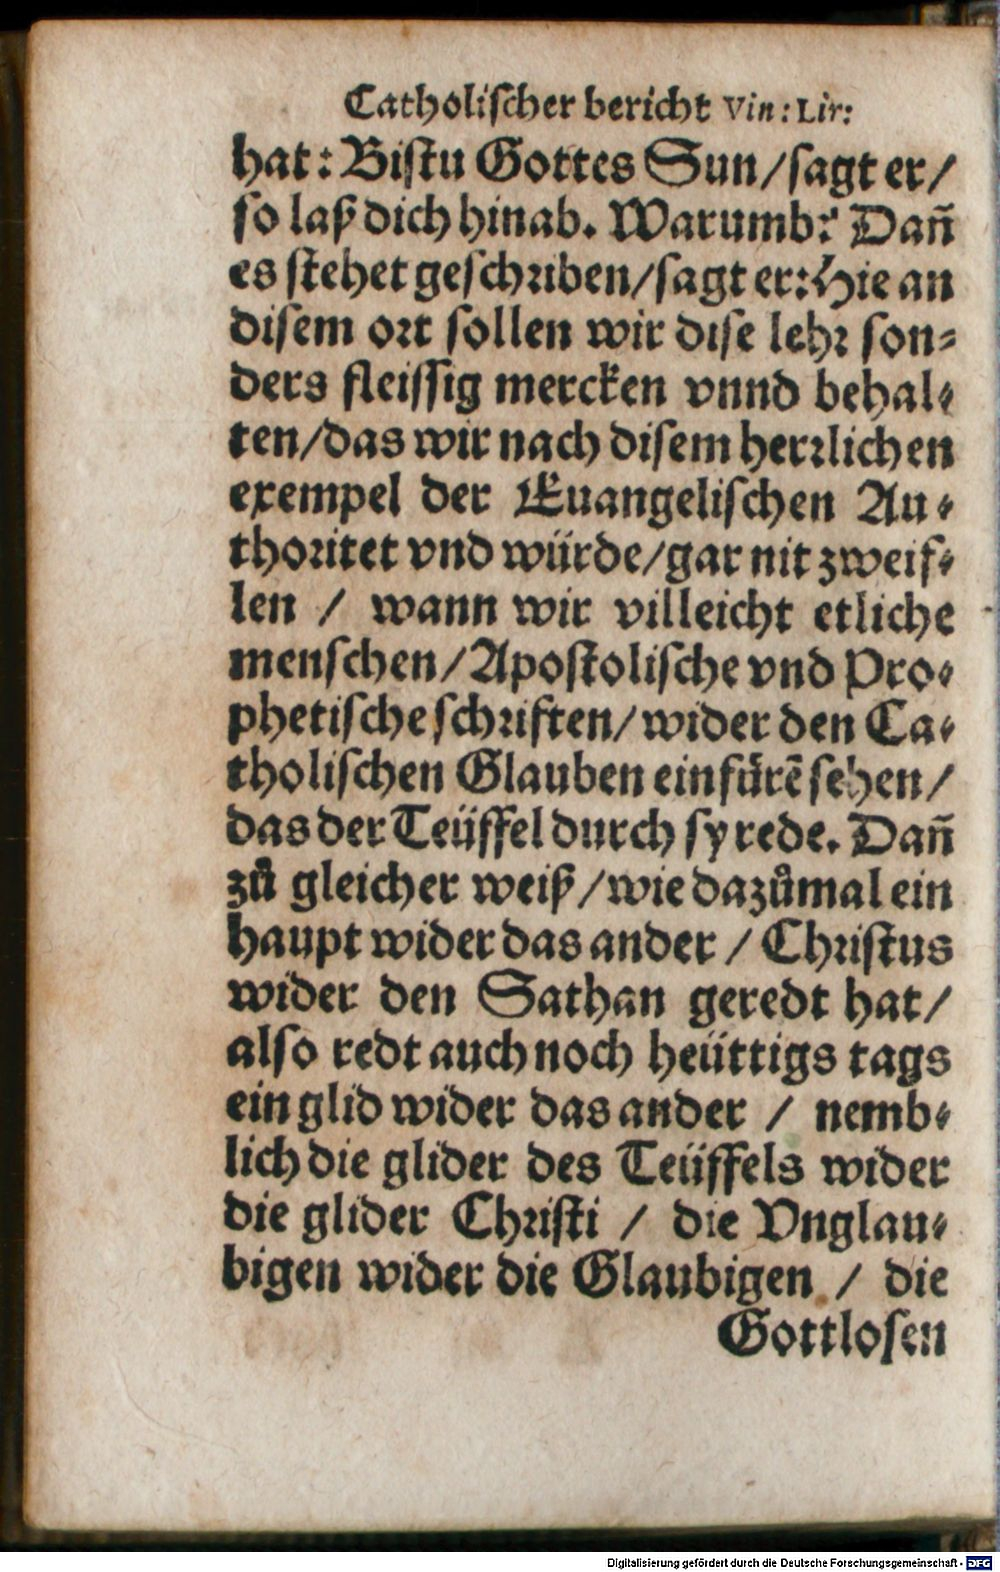 Catholischer bericht Vin: Lir:
hat: Bistu Gottes Sun/ sagt er/
so laß dich hinab. Warumb? Dañ
es stehet geschriben/ sagt er: Hie an
disem ort sollen wir dise lehr son-
ders fleissig mercken vnnd behal-
ten/ das wir nach disem herrlichen
exempel der Euangelischen Au-
thoritet vnd würde/ gar nit zweif-
len / wann wir villeicht etliche
menschen/ Apostolische vnd Pro-
phetische schriften/ wider den Ca-
tholischen Glauben einfürẽ sehen/
das der Teüffel durch sy rede. Dañ
zů gleicher weiß / wie dazůmal ein
haupt wider das ander / Christus
wider den Sathan geredt hat/
also redt auch noch heüttigs tags
ein glid wider das ander / nemb-
lich die glider des Teüffels wider
die glider Christi / die Vnglau-
bigen wider die Glaubigen / die
Gottlosen
Digitalisierung gefördert durch die Deutsche Forschungsgemeinschaft - DFG